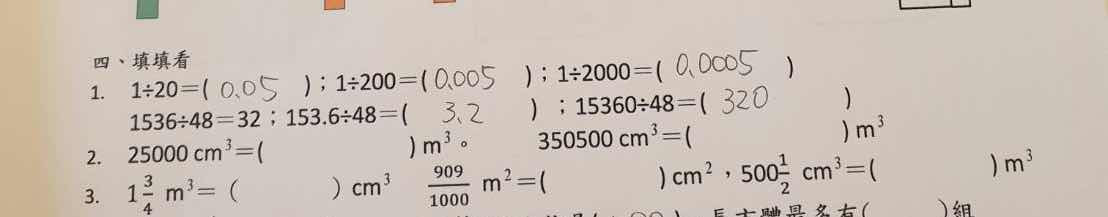 四、填填看
1. 1÷20=( 0.05 )；1÷200=( 0.005 )；1÷2000=( 0.0005 )
1536÷48=32；153.6÷48=( 3.2 )；15360÷48=( 320 )
2. 25000 cm³=( ) m³。 350500 cm³=( ) m³
3. 1 3/4 m³= ( ) cm³ 909/1000 m²=( ) cm²，500 1/2 cm³=( ) m³
長方體最多有( )組